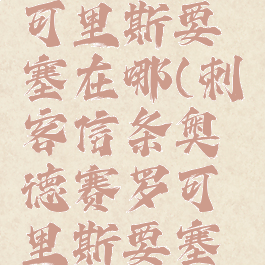 可里斯要
塞在哪(刺
客信条奥
德赛罗可
里斯要塞